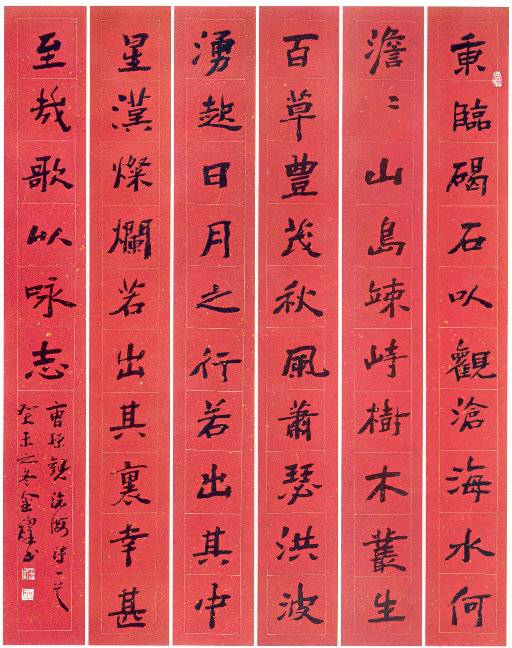 東臨碣石以觀滄海水何
澹〻山島竦峙樹木叢生
百草豐茂秋風蕭瑟洪波
湧起日月之行若出其中
星漢燦爛若出其裏幸甚
至哉歌以咏志
曹操觀滄海詩一首
癸未之冬金書